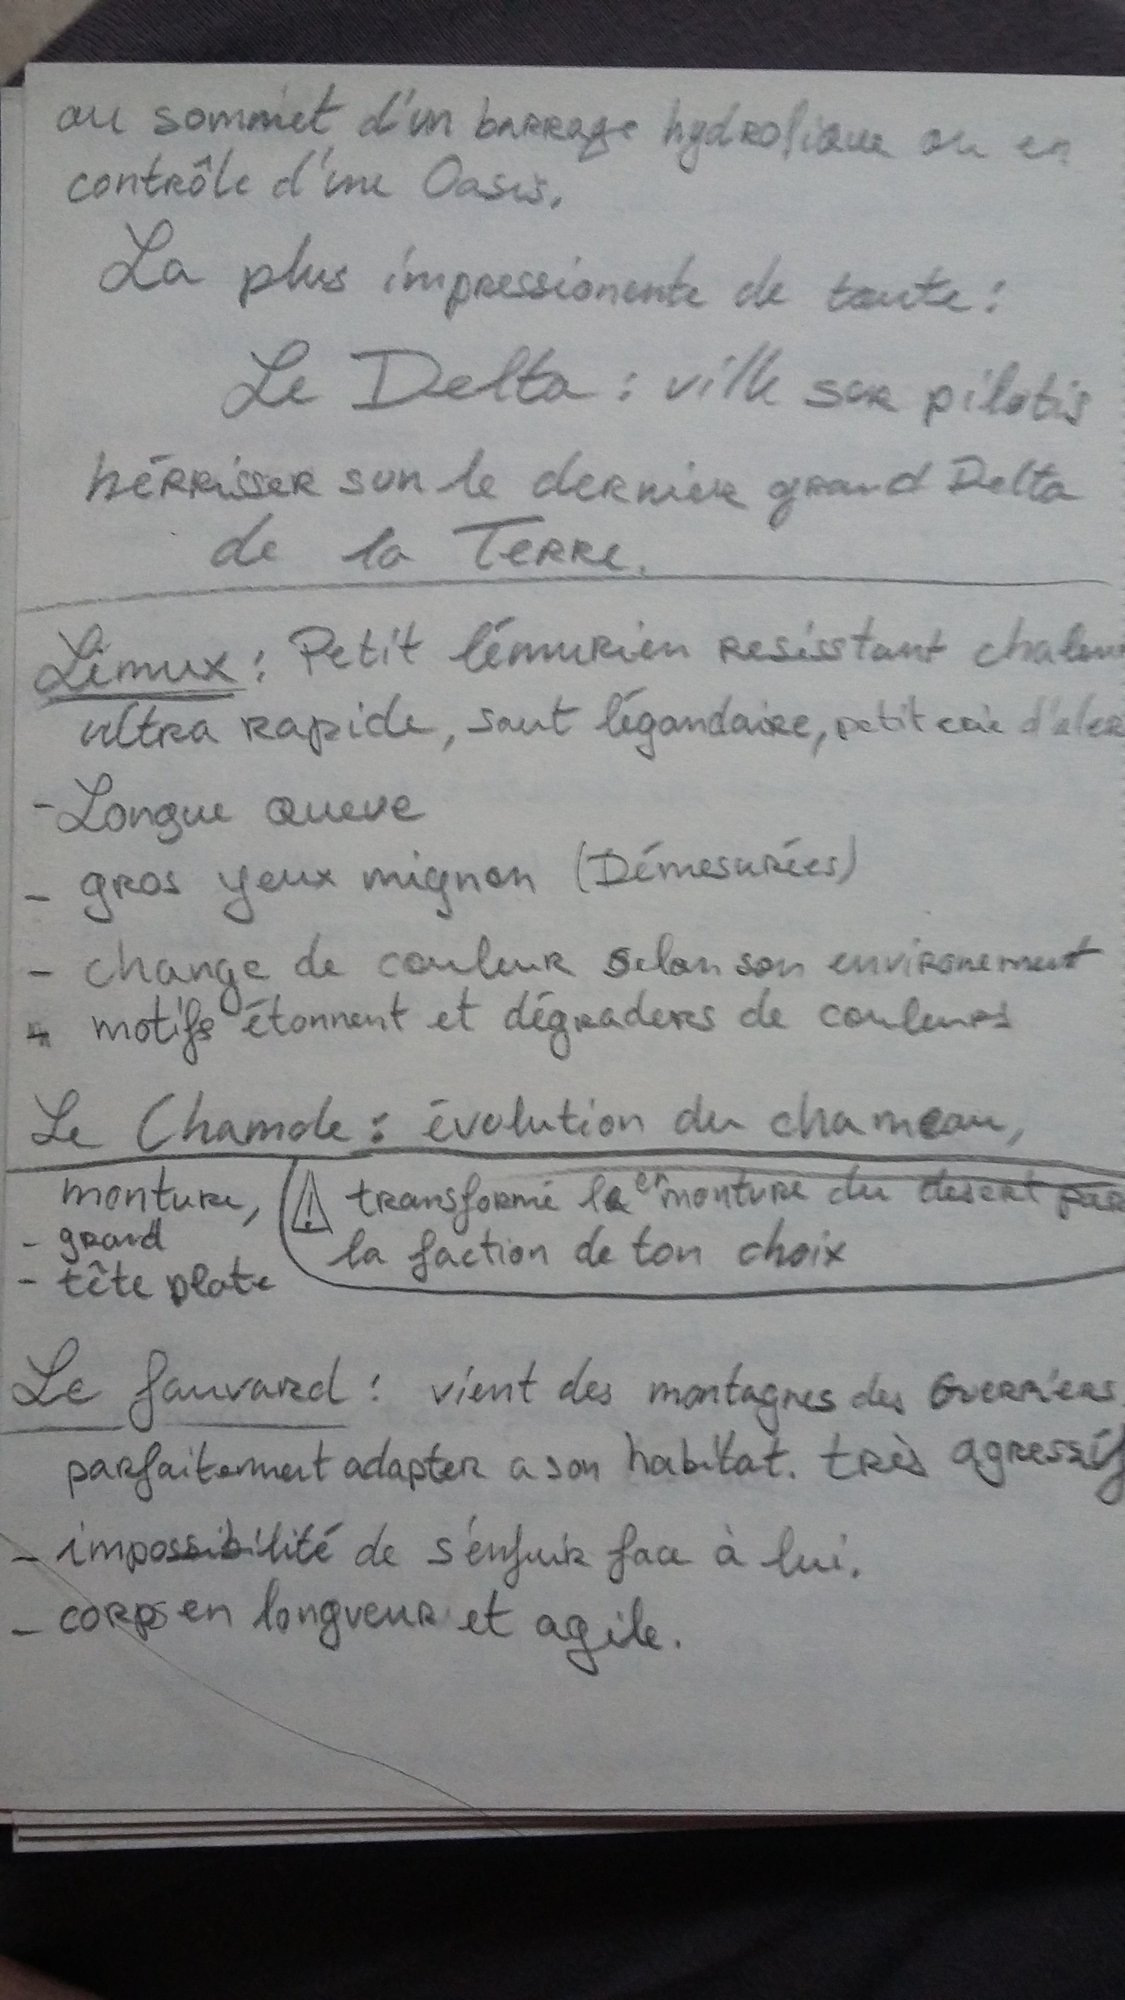 au sommet d'un barrage hydrolique ou en
contrôle d'une Oasis.
La plus impressionente de toute :
Le Delta : ville sur pilotis
hérrisser sur le dernier grand Delta
de la Terre.
Lémux : Petit lémurien resisstant chaleur
ultra rapide, saut légandaire, petit crie d'aler
- Longue queue
- gros yeux mignon (Démesurées)
- change de couleur selon son environement
motifs étonnent et dégraders de couleurs
Le Chamole : évolution du chameau,
monture,
⚠ transformé le en monture du desert par
- grand
la faction de ton choix
- tête plate
Le fauvard : vient des montagnes des Guerriers.
parfaitement adapter a son habitat. très agressif
- impossibilité de s'enfuir face à lui.
- corps en longueur et agile.